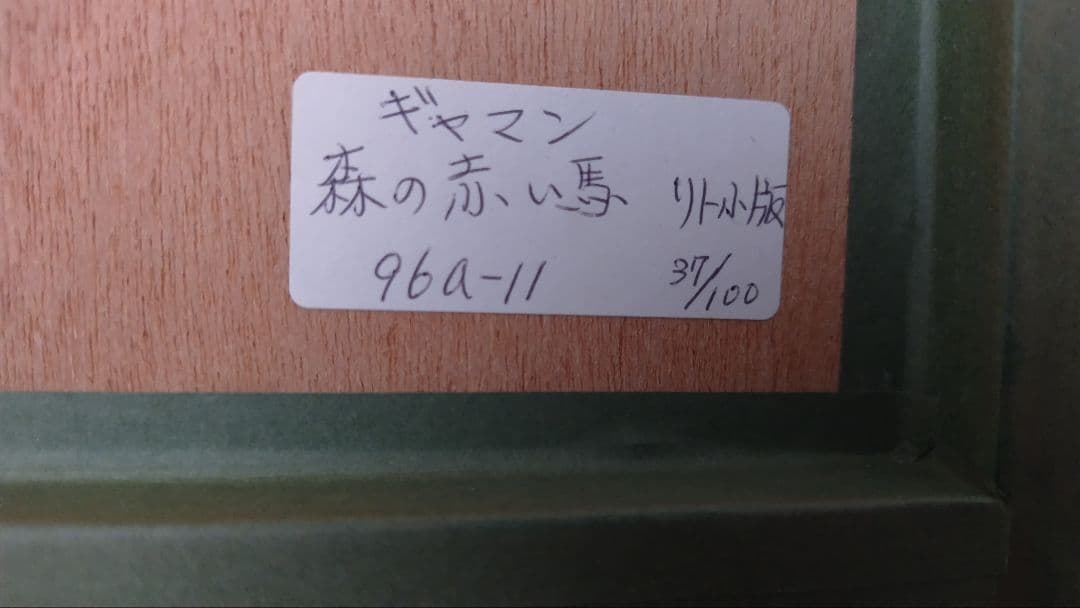 ギヤマン
森の赤い馬 リト小版
96a-11 37/100